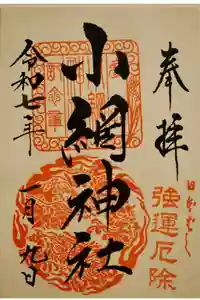 奉拝
日本ばし
強運厄除
小網神社
令和七年
一月九日